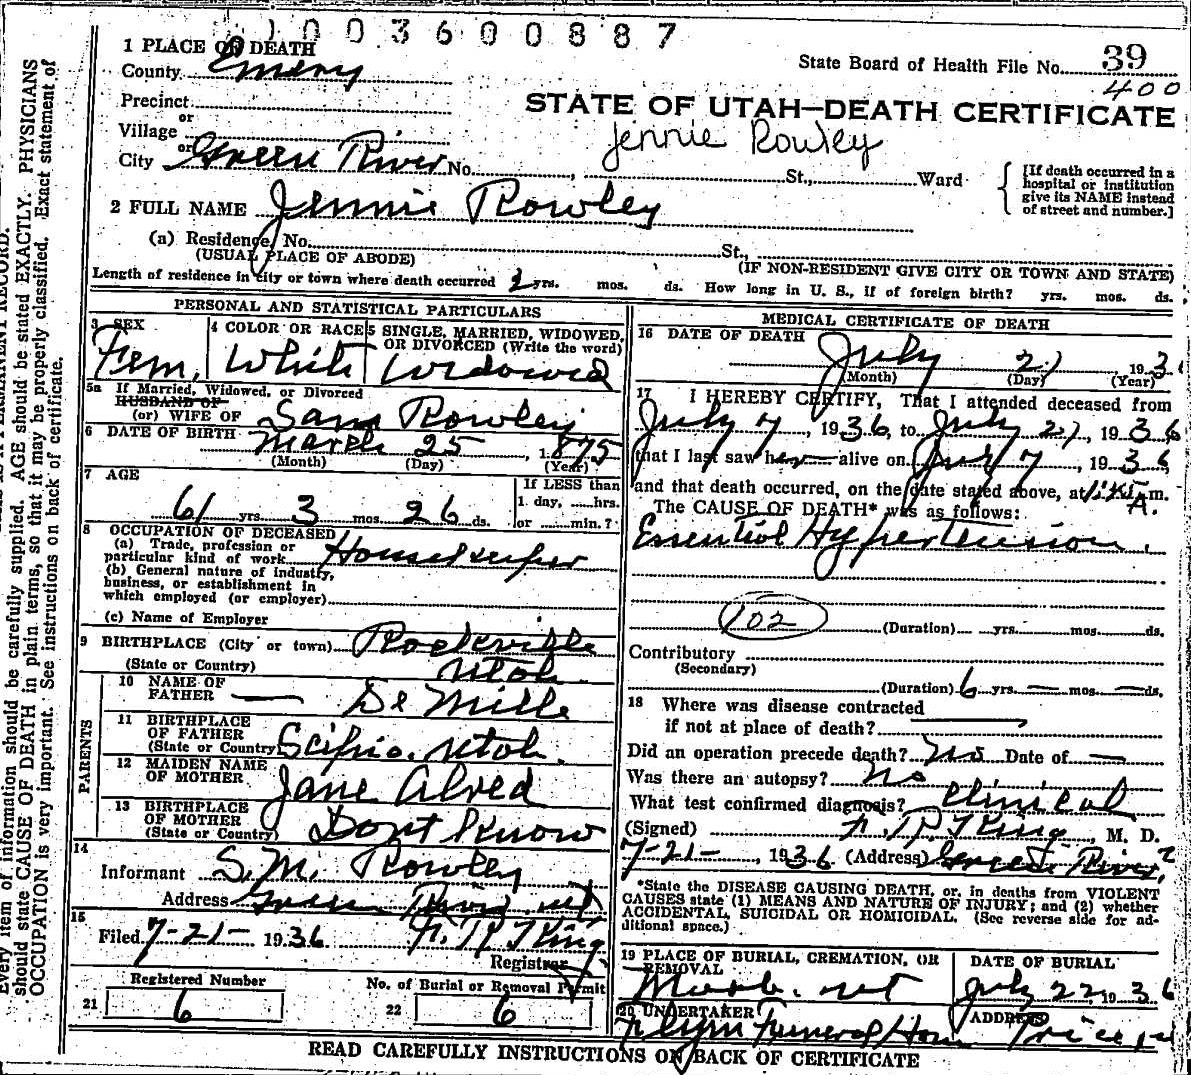 1003600887
1 PLACE OF DEATH
County Emery
State Board of Health File No. 39
400
Precinct
or
STATE OF UTAH—DEATH CERTIFICATE
Village
Jennie Rowley
or
City Green River No. , St., Ward
[If death occurred in a hospital or institution give its NAME instead of street and number.]
2 FULL NAME Jennie Rowley
(a) Residence, No. St.,
(USUAL PLACE OF ABODE) (IF NON-RESIDENT GIVE CITY OR TOWN AND STATE)
Length of residence in city or town where death occurred yrs. mos. ds. How long in U. S., if of foreign birth? yrs. mos. ds.
PERSONAL AND STATISTICAL PARTICULARS
3 SEX
Fem.
4 COLOR OR RACE
White
5 SINGLE, MARRIED, WIDOWED, OR DIVORCED (Write the word)
Widowed
5a If Married, Widowed, or Divorced
HUSBAND OF
(or) WIFE OF Sam Rowley
6 DATE OF BIRTH March 25, 1875
(Month) (Day) (Year)
7 AGE
61 yrs. 3 mos. 26 ds.
If LESS than
1 day, hrs.
or min.?
8 OCCUPATION OF DECEASED
(a) Trade, profession or
particular kind of work Housekeeper
(b) General nature of industry,
business, or establishment in
which employed (or employer)
(c) Name of Employer
9 BIRTHPLACE (City or town) Rockville
(State or Country) Utah
PARENTS
10 NAME OF
FATHER — De Mille
11 BIRTHPLACE
OF FATHER
(State or Country) Scipio, Utah.
12 MAIDEN NAME
OF MOTHER Jane Alred
13 BIRTHPLACE
OF MOTHER
(State or Country) Dont Know
14
Informant S. M. Rowley
Address Green River. ut
15
Filed 7-21- 1936 F. R. King
Registrar
Registered Number
21 6
No. of Burial or Removal Permit
22 6
MEDICAL CERTIFICATE OF DEATH
16 DATE OF DEATH
July 21 193
(Month) (Day) (Year)
17 I HEREBY CERTIFY, That I attended deceased from
July 7, 1936, to July 21, 1936
that I last saw her alive on July 7, 1936,
and that death occurred, on the date stated above, at A. m.
The CAUSE OF DEATH* was as follows:
Essential Hypertension.
102
(Duration) yrs. mos. ds.
Contributory
(Secondary)
(Duration) 6 yrs. — mos. — ds.
18 Where was disease contracted
if not at place of death?
Did an operation precede death? no Date of —
Was there an autopsy? no
What test confirmed diagnosis? Clinical
(Signed) F. R. King, M. D.
7-21-, 1936 (Address) Green River
*State the DISEASE CAUSING DEATH, or, in deaths from VIOLENT
CAUSES state (1) MEANS AND NATURE OF INJURY; and (2) whether
ACCIDENTAL, SUICIDAL OR HOMICIDAL. (See reverse side for ad-
ditional space.)
19 PLACE OF BURIAL, CREMATION, OR
REMOVAL
Moab. ut
DATE OF BURIAL
July 22 1936
20 UNDERTAKER
Flynn Funeral Home
ADDRESS
Price
READ CAREFULLY INSTRUCTIONS ON BACK OF CERTIFICATE
Every item of information should be carefully supplied. AGE should be stated EXACTLY. PHYSICIANS
should state CAUSE OF DEATH in plain terms, so that it may be properly classified. Exact statement of
OCCUPATION is very important. See instructions on back of certificate.